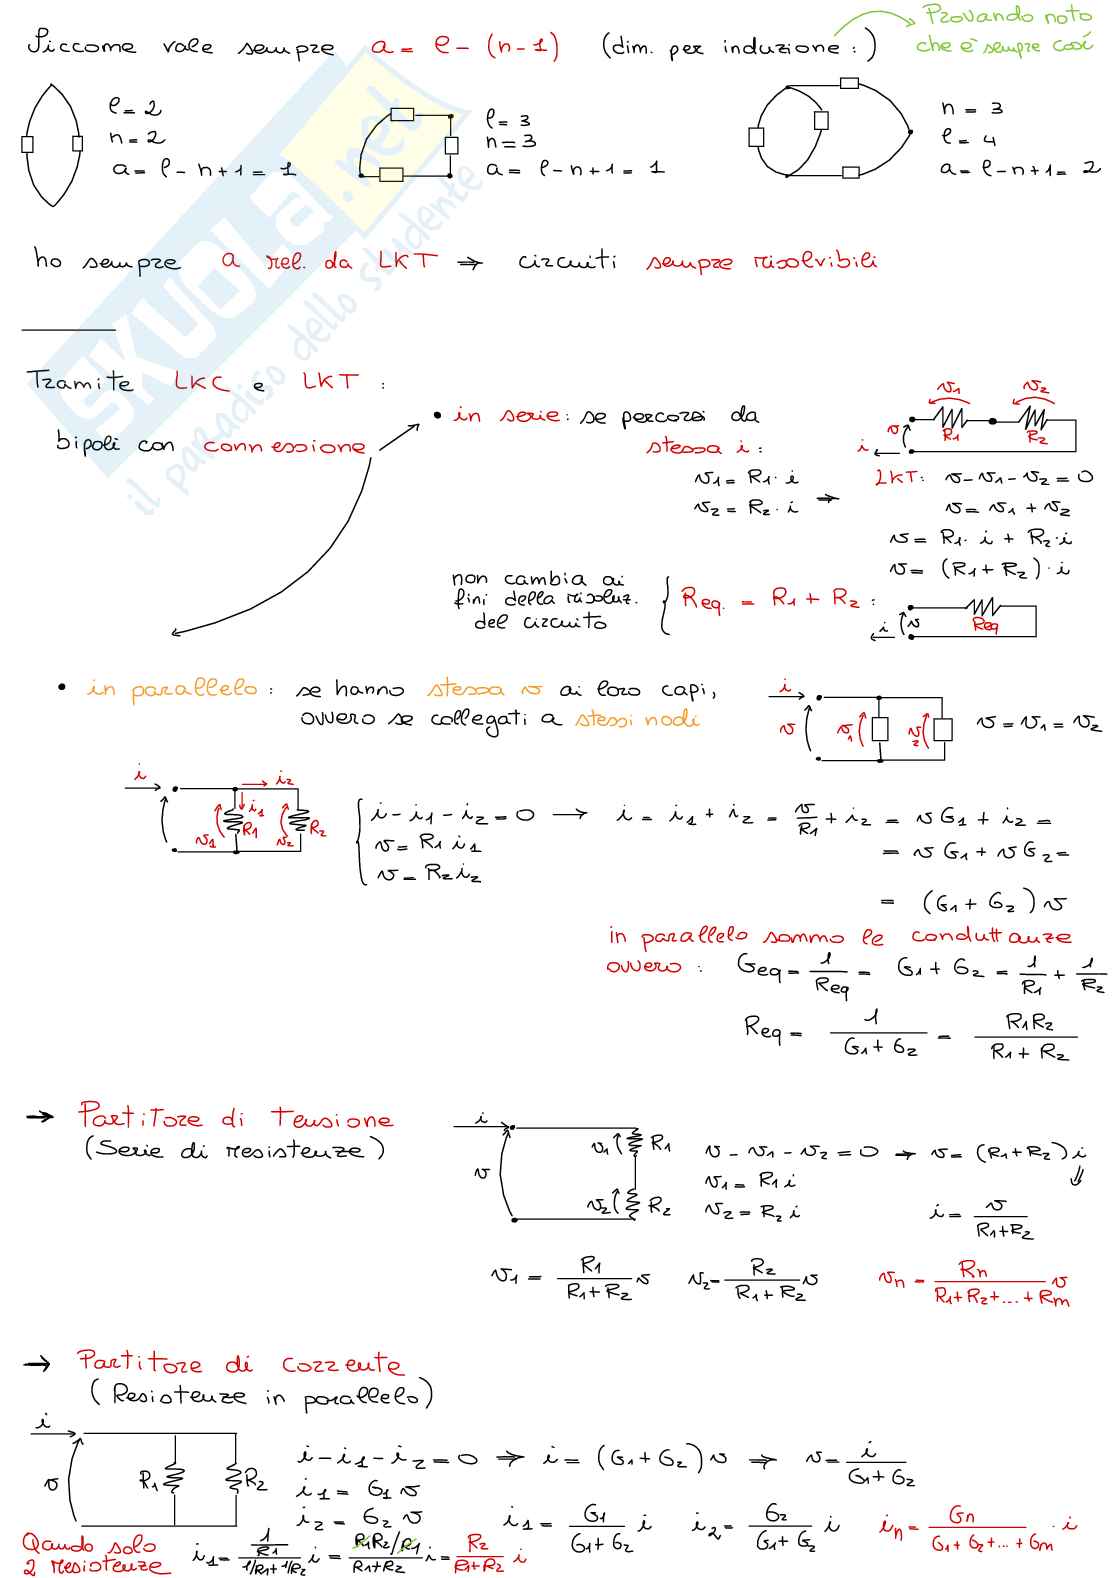 Siccome vale sempre a = l - (n-1) (dim. per induzione:)
Provando noto
che è sempre così
l = 2
n = 2
a = l - n + 1 = 1
l = 3
n = 3
a = l - n + 1 = 1
n = 3
l = 4
a = l - n + 1 = 2
ho sempre a rel. da LKT ⇒ circuiti sempre risolvibili
SKUOLA.net
il paradiso dello studente
Tramite LKC e LKT :
bipoli con connessione
• in serie: se percorsi da
stessa i :
v1 = R1 · i
v2 = R2 · i ⇒
v1 v2
v R1 R2
i
LKT: v - v1 - v2 = 0
v = v1 + v2
v = R1 · i + R2 · i
v = (R1 + R2) · i
non cambia ai
fini della risoluz.
del circuito
{ Req. = R1 + R2 :
i v Req
• in parallelo : se hanno stessa v ai loro capi,
ovvero se collegati a stessi nodi
i
v v1 v2
v = v1 = v2
i i2
i1
v1 R1 v2 R2
i - i1 - i2 = 0 → i = i1 + i2 = v/R1 + i2 = v G1 + i2 =
v = R1 i1
= v G1 + v G2 =
v = R2 i2
= (G1 + G2) v
in parallelo sommo le conduttanze
ovvero : Geq = 1/Req = G1 + G2 = 1/R1 + 1/R2
Req = 1/(G1 + G2) = R1R2/(R1 + R2)
→ Partitore di Tensione
(Serie di resistenze)
i
v v1 R1
v2 R2
v - v1 - v2 = 0 → v = (R1+R2) i
⇓
v1 = R1 i
v2 = R2 i
i = v/(R1+R2)
v1 = R1/(R1+R2) v v2 = R2/(R1+R2) v vn = Rn/(R1+R2+...+Rm) v
→ Partitore di corrente
(Resistenze in parallelo)
i
v R1 R2
i - i1 - i2 = 0 ⇒ i = (G1+G2) v ⇒ v = i/(G1+G2)
i1 = G1 v
i2 = G2 v
i1 = G1/(G1+G2) i i2 = G2/(G1+G2) i in = Gn/(G1+G2+...+Gm) · i
Qando solo
2 resistenze
i1 = (1/R1)/(1/R1+1/R2) i = (R1R2/R1)/(R1+R2) i = R2/(R1+R2) i